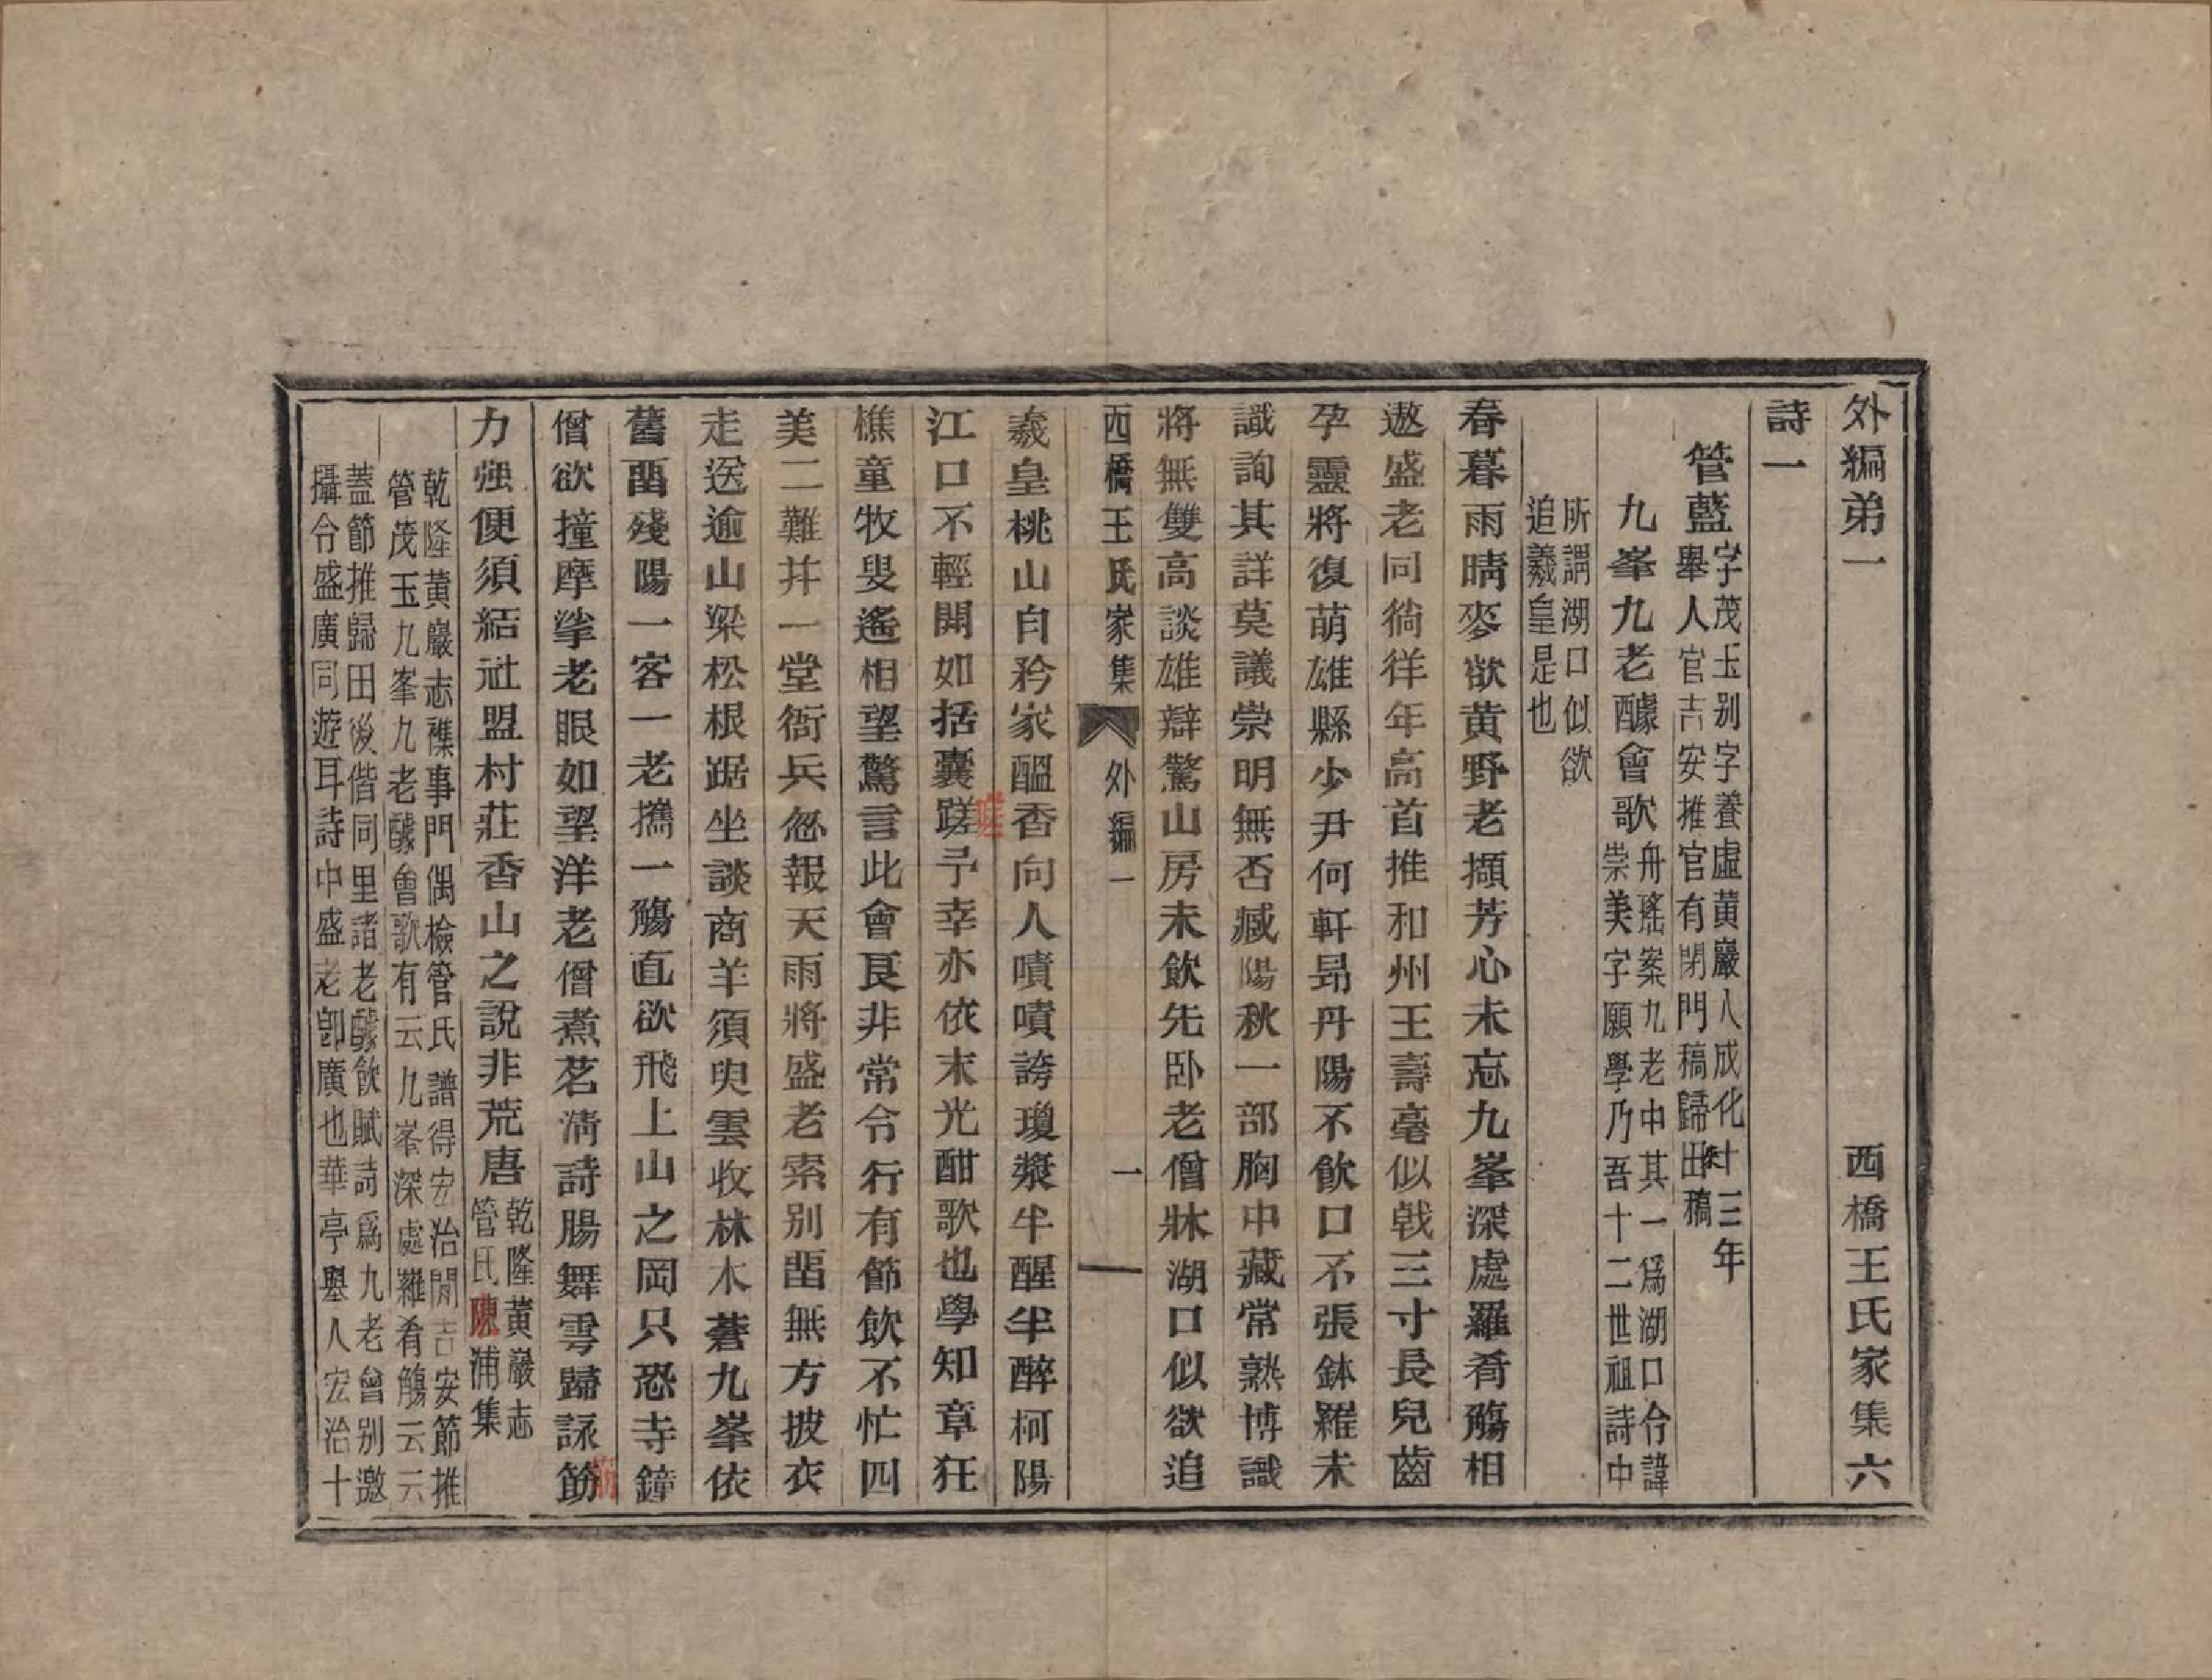 外編弟一　西橋王氏家集六
詩一
管藍
字茂玉別字養虛黃巖人成化十三年
舉人官吉安推官有閉門稿歸田稿
九峯九老醵會歌
舟瑤案九老中其一爲湖口令諱
崇美字願學乃吾十二世祖詩中
所謂湖口似欲
追羲皇是也
春暮雨晴麥欲黃野老擷芳心未忘九峯深處羅肴觴相
邀盛老同徜徉年高首推和州王壽毫似戟三寸長兒齒
孕靈將復萌雄縣少尹何軒昻丹陽不飲口不張鉢羅未
識詢其詳莫議崇明無否臧陽秋一部胸中藏常熟博識
將無雙高談雄辯驚山房未飲先卧老僧牀湖口似欲追
西橋王氏家集　外編一　一
羲皇桃山自矜家醞香向人嘖嘖誇瓊漿半醒半醉柯陽
江口不輕開如括囊蹉予幸亦依末光酣歌也學知章狂
樵童牧叟遙相望驚言此會良非常令行有節飲不忙四
美二難并一堂衙兵忽報天雨將盛老索別畱無方披衣
走送逾山梁松根踞坐談商羊須臾雲收林木蒼九峯依
舊畱殘陽一客一老攜一觴直欲飛上山之岡只恐寺鐘
僧欲撞摩挲老眼如望洋老僧煮茗淸詩腸舞雩歸詠筋
力强便須結社盟村莊香山之說非荒唐
乾隆黃巖志
管氏陳浦集
乾隆黃巖志襍事門偶檢管氏譜得宏治閒吉安節推
管茂玉九峯九老醵會歌有云九峯深處羅肴觴云云
蓋節推歸田後偕同里諸老醵飲賦詩爲九老會別邀
攝令盛廣同遊耳詩中盛老卽廣也華亭舉人宏治十